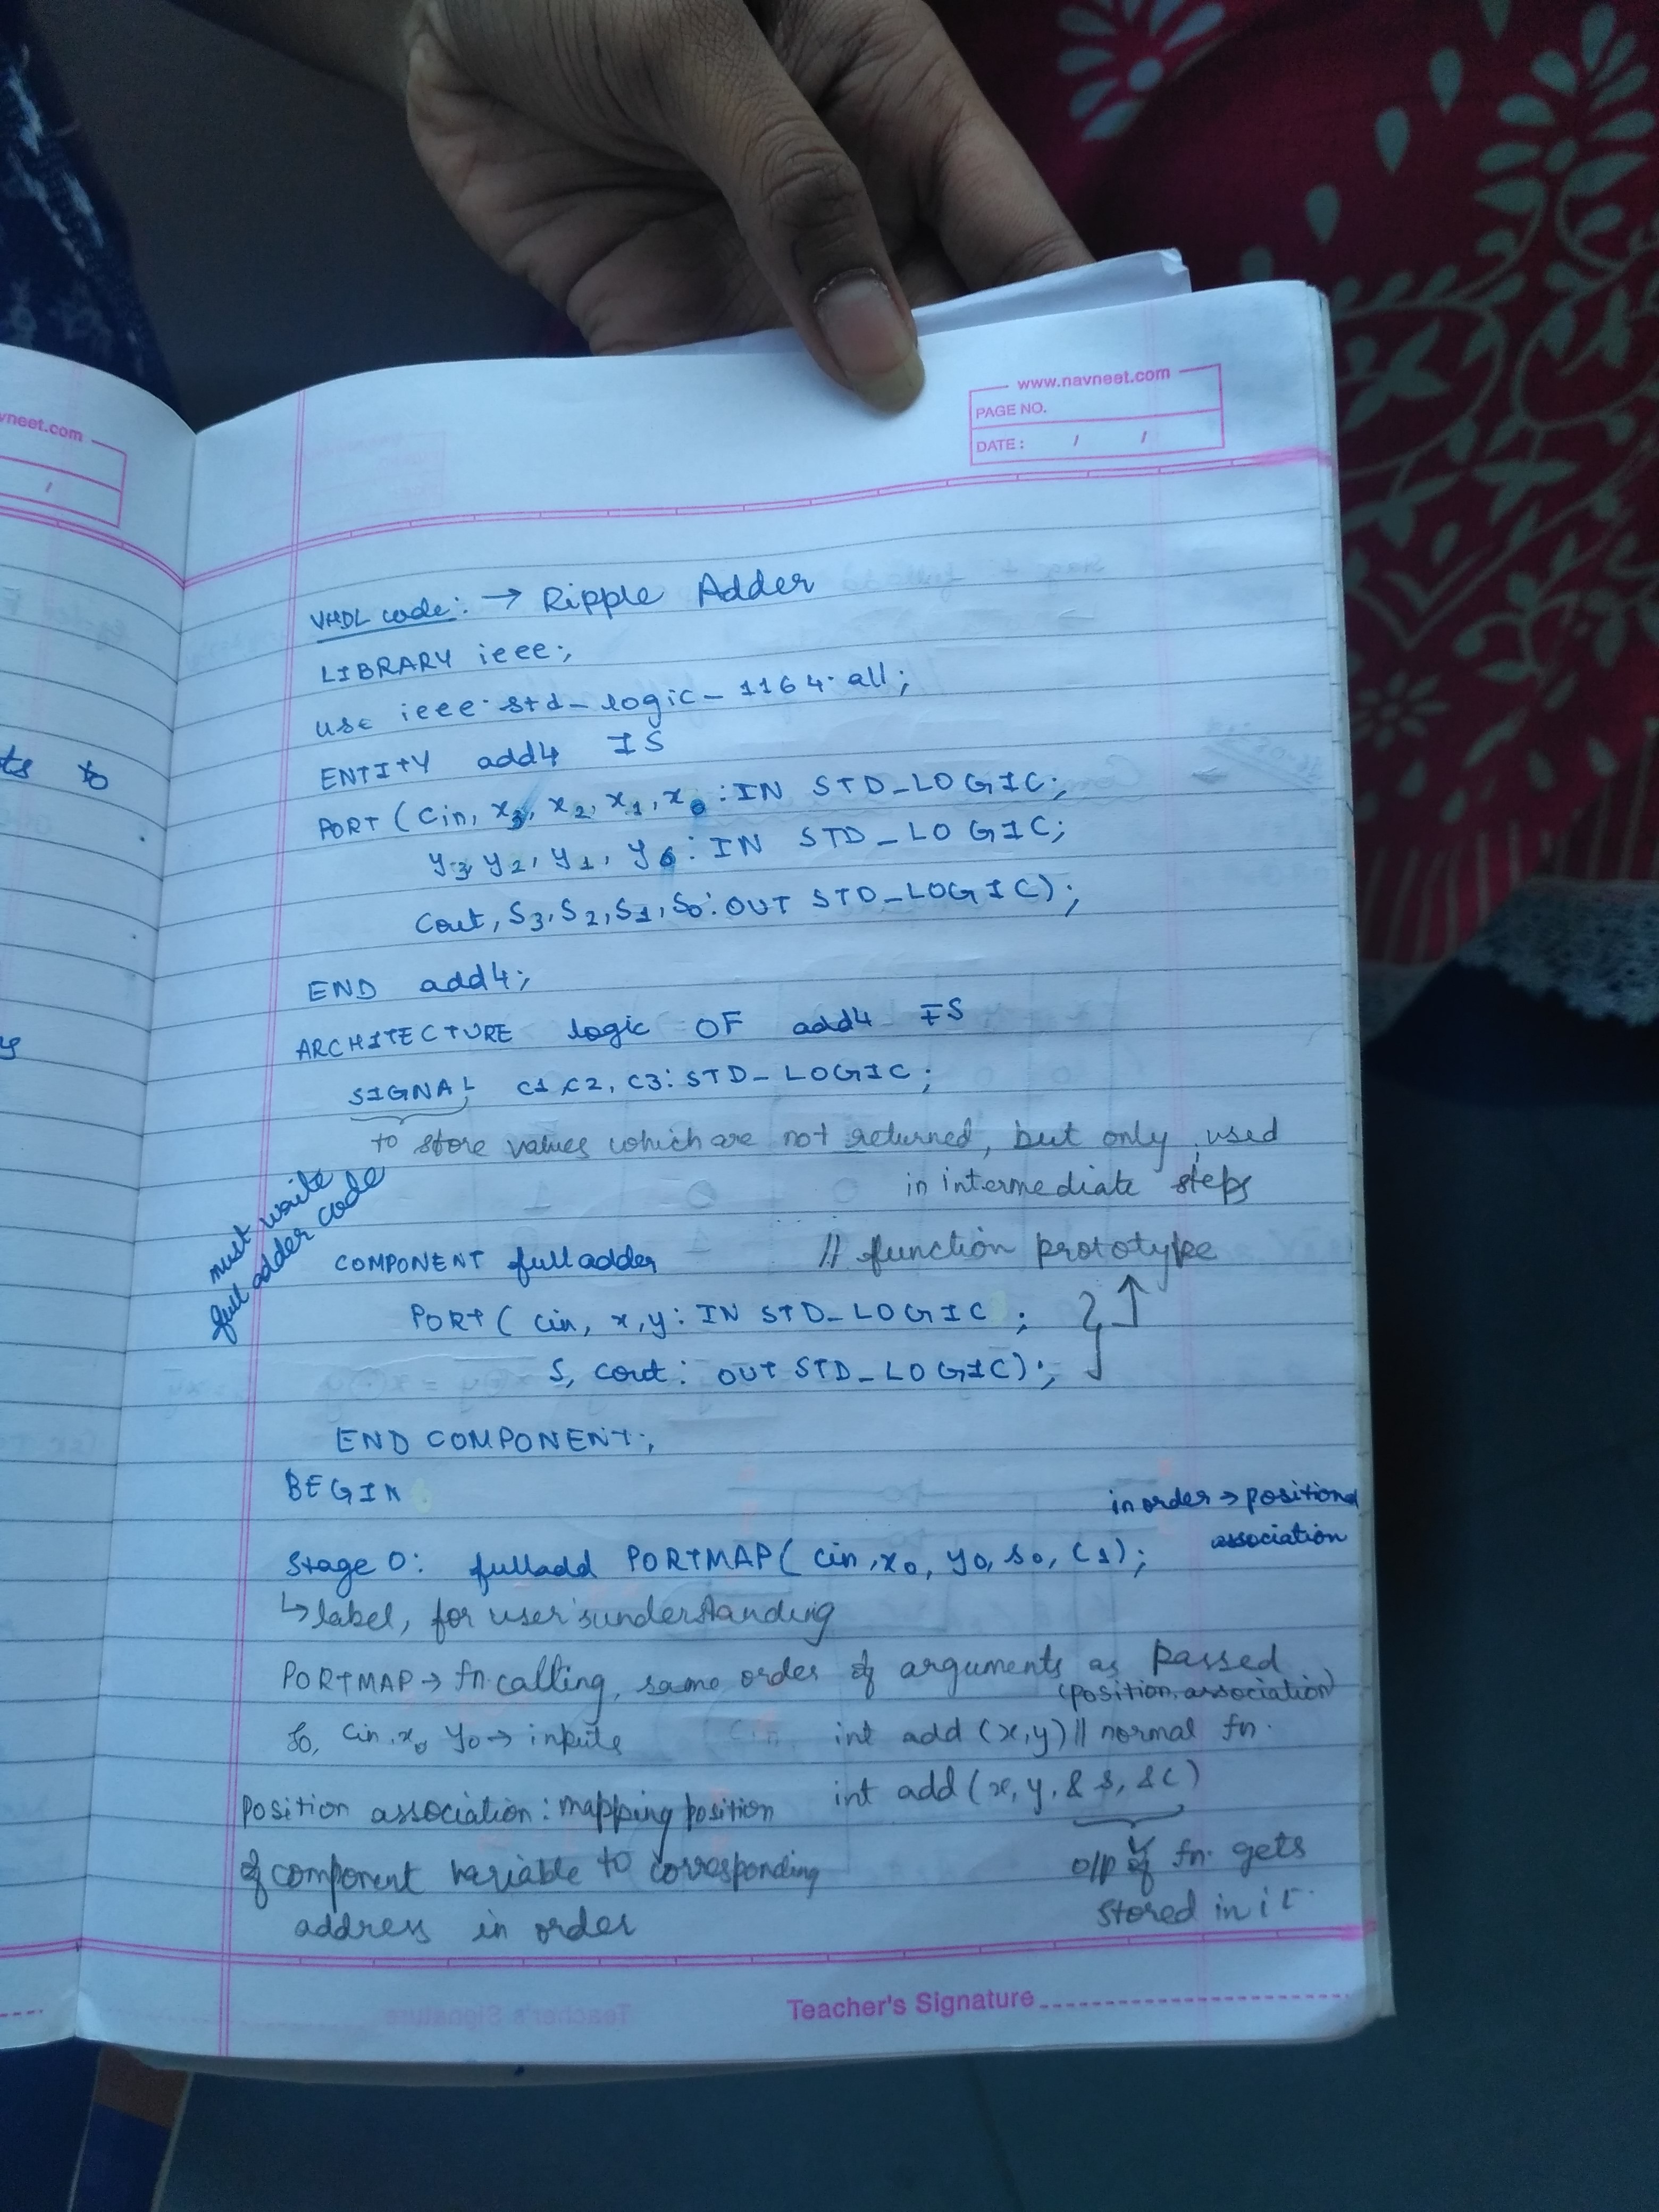 vneet.com
/
ts to
www.navneet.com
PAGE NO.
DATE: / /
VHDL code: → Ripple Adder
LIBRARY ieee;
use ieee.std_logic_1164.all;
ENTITY add4 IS
PORT (Cin, x3, x2, x1, x0 : IN STD_LOGIC;
y3, y2, y1, y0 : IN STD_LOGIC;
Cout, S3, S2, S1, S0 : OUT STD_LOGIC);
END add4;
ARCHITECTURE logic OF add4 IS
SIGNAL c1, c2, c3 : STD_LOGIC;
to store values which are not returned, but only used
in intermediate steps
must write
full adder code
COMPONENT fulladder // function prototype
PORT ( cin, x, y : IN STD_LOGIC ;
S, cout : OUT STD_LOGIC);
END COMPONENT;
BEGIN
in order → positional
association
Stage 0: fulladd PORTMAP ( cin, x0, y0, s0, c1);
↳ label, for user's understanding
PORTMAP → fn. calling, same order of arguments as passed
(position. association)
So, cin, x0 y0 → inputs int add (x,y) // normal fn.
Position association : mapping position int add (x, y, & s, &c)
of component variable to corresponding o/p of fn. gets
address in order stored in it.
Teacher's Signature